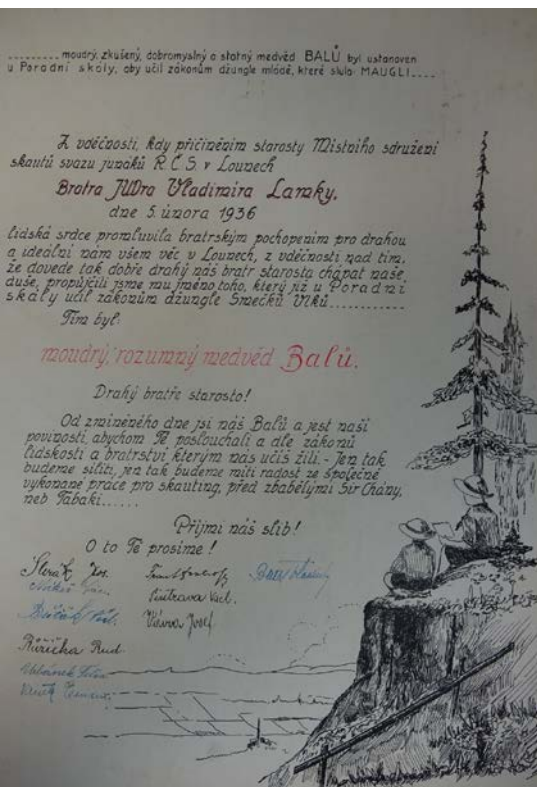 ......... moudrý, zkušený, dobromyslný a statný medvěd BALŮ byl ustanoven
u Poradní skály, aby učil zákonům džungle mládě, které sluló MAUGLI....
Z vděčnosti, kdy přičiněním starosty Místního sdružení
skautů svazu junáků R.Č.S. v Lounech
Bratra JUDra Vladimíra Lamky,
dne 5. února 1936
lidská srdce promluvila bratrským pochopením pro drahou
a ideální nám všem věc v Lounech, z vděčnosti nad tím,
že dovede tak dobře drahý náš bratr starosta chápat naše
duše, propůjčili jsme mu jméno toho, který již u Poradní
skály učil zákonům džungle Smečku Vlků............
Tím byl:
moudrý, rozumný medvěd Balů.
Drahý bratře starosto!
Od zmíněného dne jsi náš Balů a jest naší
povinností, abychom Tě poslouchali a dle zákonů
lidskosti a bratrství kterým nás učíš žili. - Jen tak
budeme sílíti, jen tak budeme míti radost ze společně
vykonané práce pro skauting, před zbabělými Šír Chány,
neb Tabaki......
Přijmi náš slib!
O to Tě prosíme!
Růžička Rud.